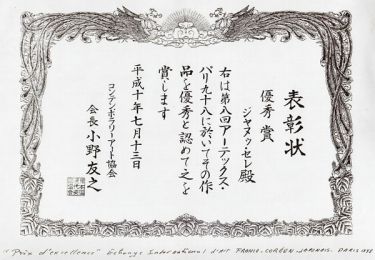 表彰状
優秀賞
ジャヌゥ・セレ殿
右は第八回アーテックス・
パリ九十八に於いてその作
品を優秀と認めて之を
賞します
平成十年七月十三日
コンテンポラリーアート協会
会長 小野友之
"Prix d'excellence" Échange International d'Art FRANCO-CORÉEN-JAPONAIS. PARIS 1998